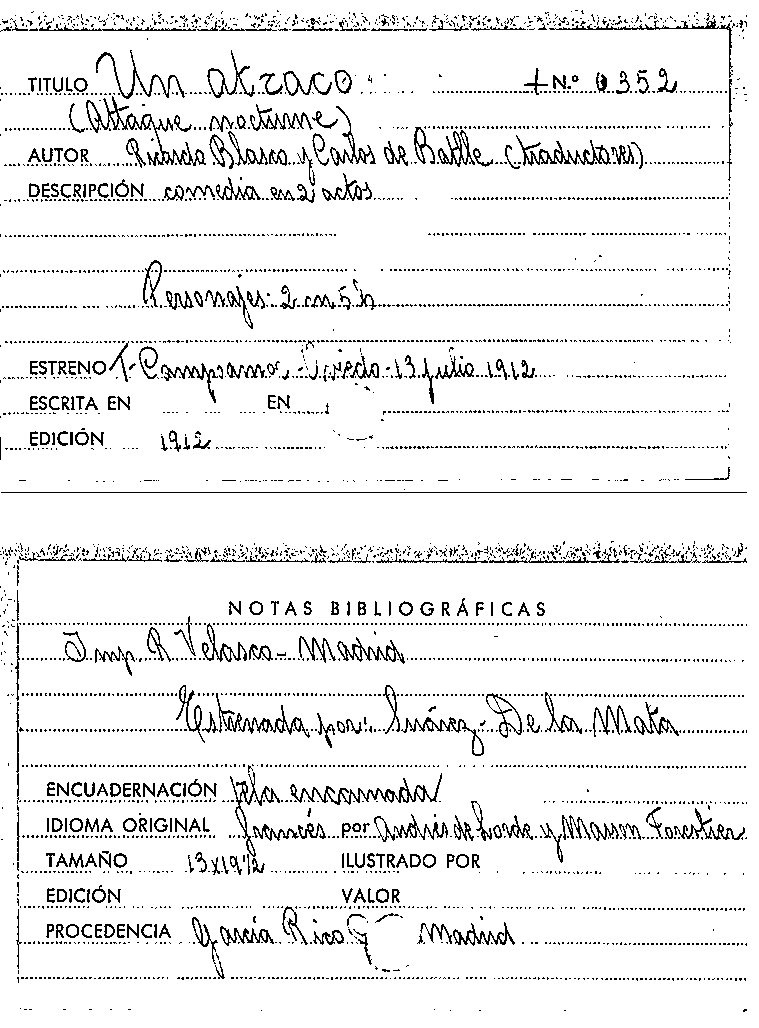 TITULO Un atraco + N.º 0352
(Attaque nocturne)
AUTOR Ricardo Blasco y Carlos de Batlle (traductores)
DESCRIPCIÓN comedia en 2 actos
Personajes: 2 m 5 h
ESTRENO T. Campoamor - Oviedo - 13 julio 1912
ESCRITA EN EN
EDICIÓN 1912
NOTAS BIBLIOGRÁFICAS
Imp. R Velasco - Madrid
Estrenada por: Suárez - De la Mata
ENCUADERNACIÓN tela encarnada
IDIOMA ORIGINAL francés por Andrés de Lorde y Masson Forestier
TAMAÑO 13x19 1/2 ILUSTRADO POR
EDICIÓN VALOR
PROCEDENCIA García Rico Madrid